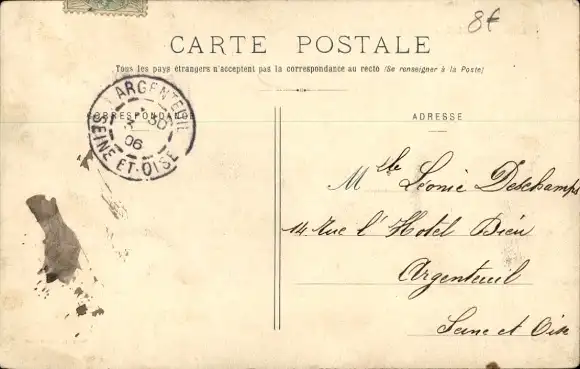 8€
CARTE POSTALE
Tous les pays étrangers n'acceptent pas la correspondance au recto (Se renseigner à la Poste)
ARGENTEUIL
30
06
SEINE-ET-OISE
CORRESPONDANCE
ADRESSE
Mlle Léonie Deschamps
14 Rue l' Hotel Dieu
Argenteuil
Seine et Oise